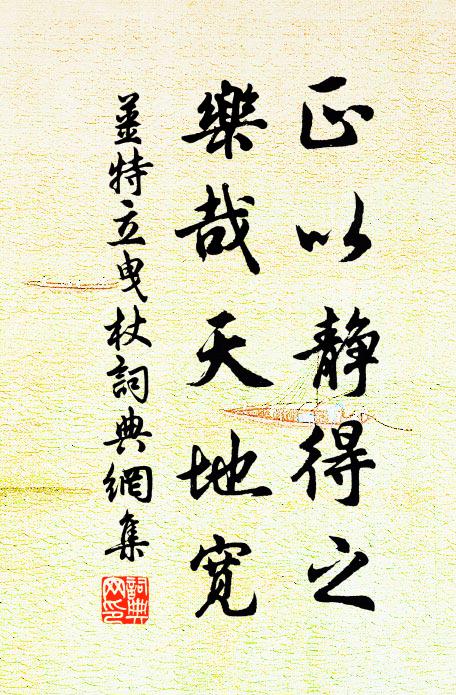 正以静得之
樂哉天地寬
姜特立曳杖詞典網集
詞典網印